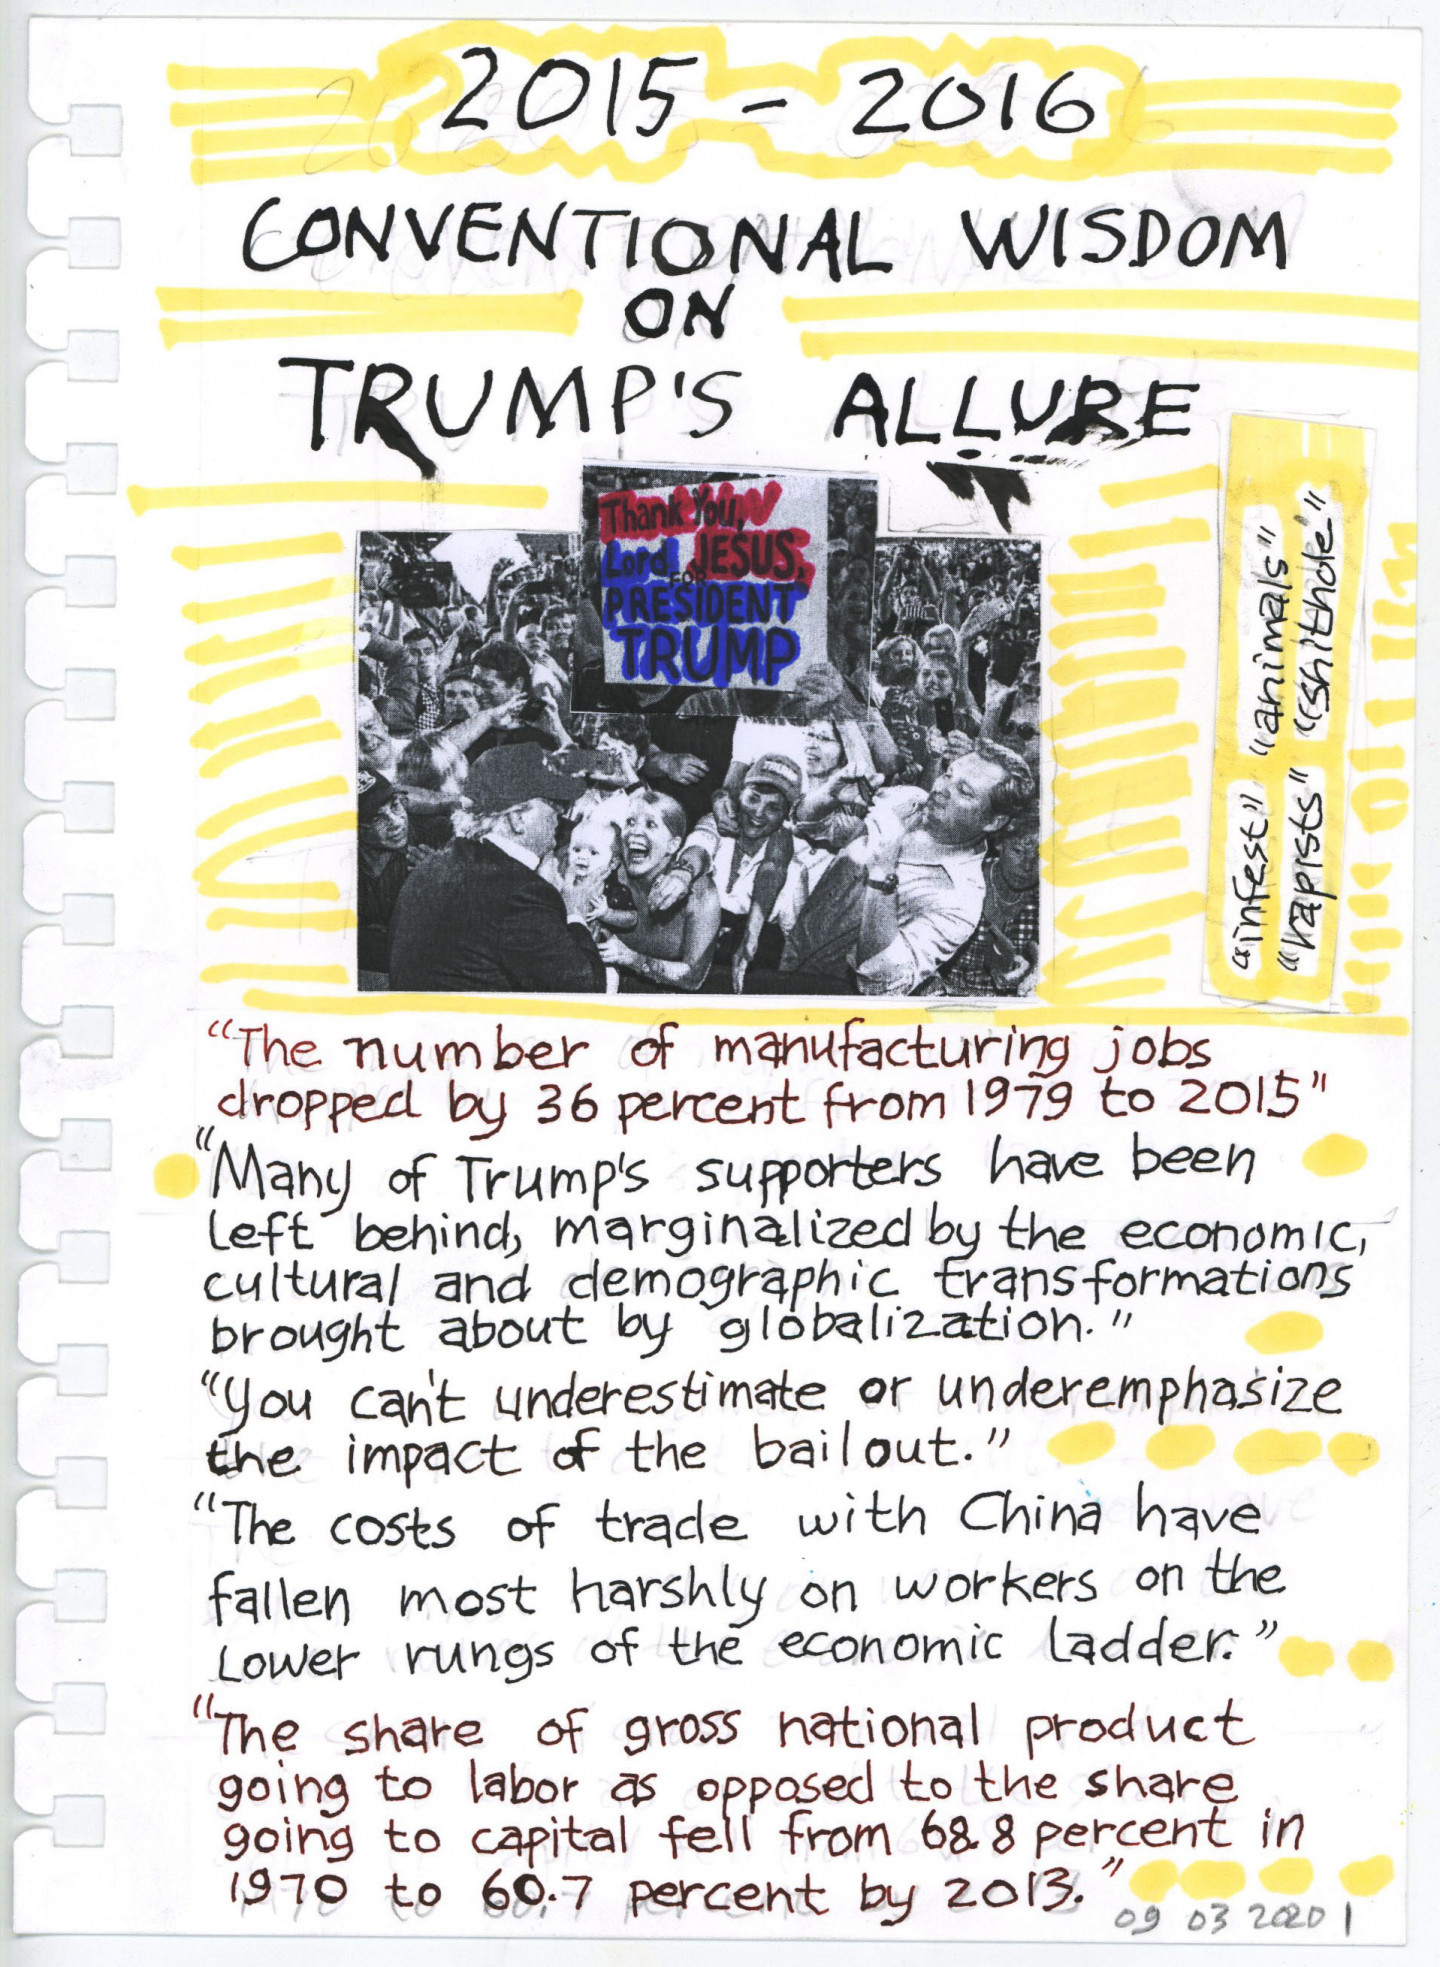 2015 - 2016
CONVENTIONAL WISDOM
ON
TRUMP'S ALLURE
Thank You,
Lord, JESUS,
FOR
PRESIDENT
TRUMP
"infest" "animals"
"rapists" "shithole"
"The number of manufacturing jobs
dropped by 36 percent from 1979 to 2015"
"Many of Trump's supporters have been
left behind, marginalized by the economic,
cultural and demographic transformations
brought about by globalization."
"You can't underestimate or underemphasize
the impact of the bailout."
"The costs of trade with China have
fallen most harshly on workers on the
lower rungs of the economic ladder."
"The share of gross national product
going to labor as opposed to the share
going to capital fell from 68.8 percent in
1970 to 60.7 percent by 2013."
09 03 2020 |